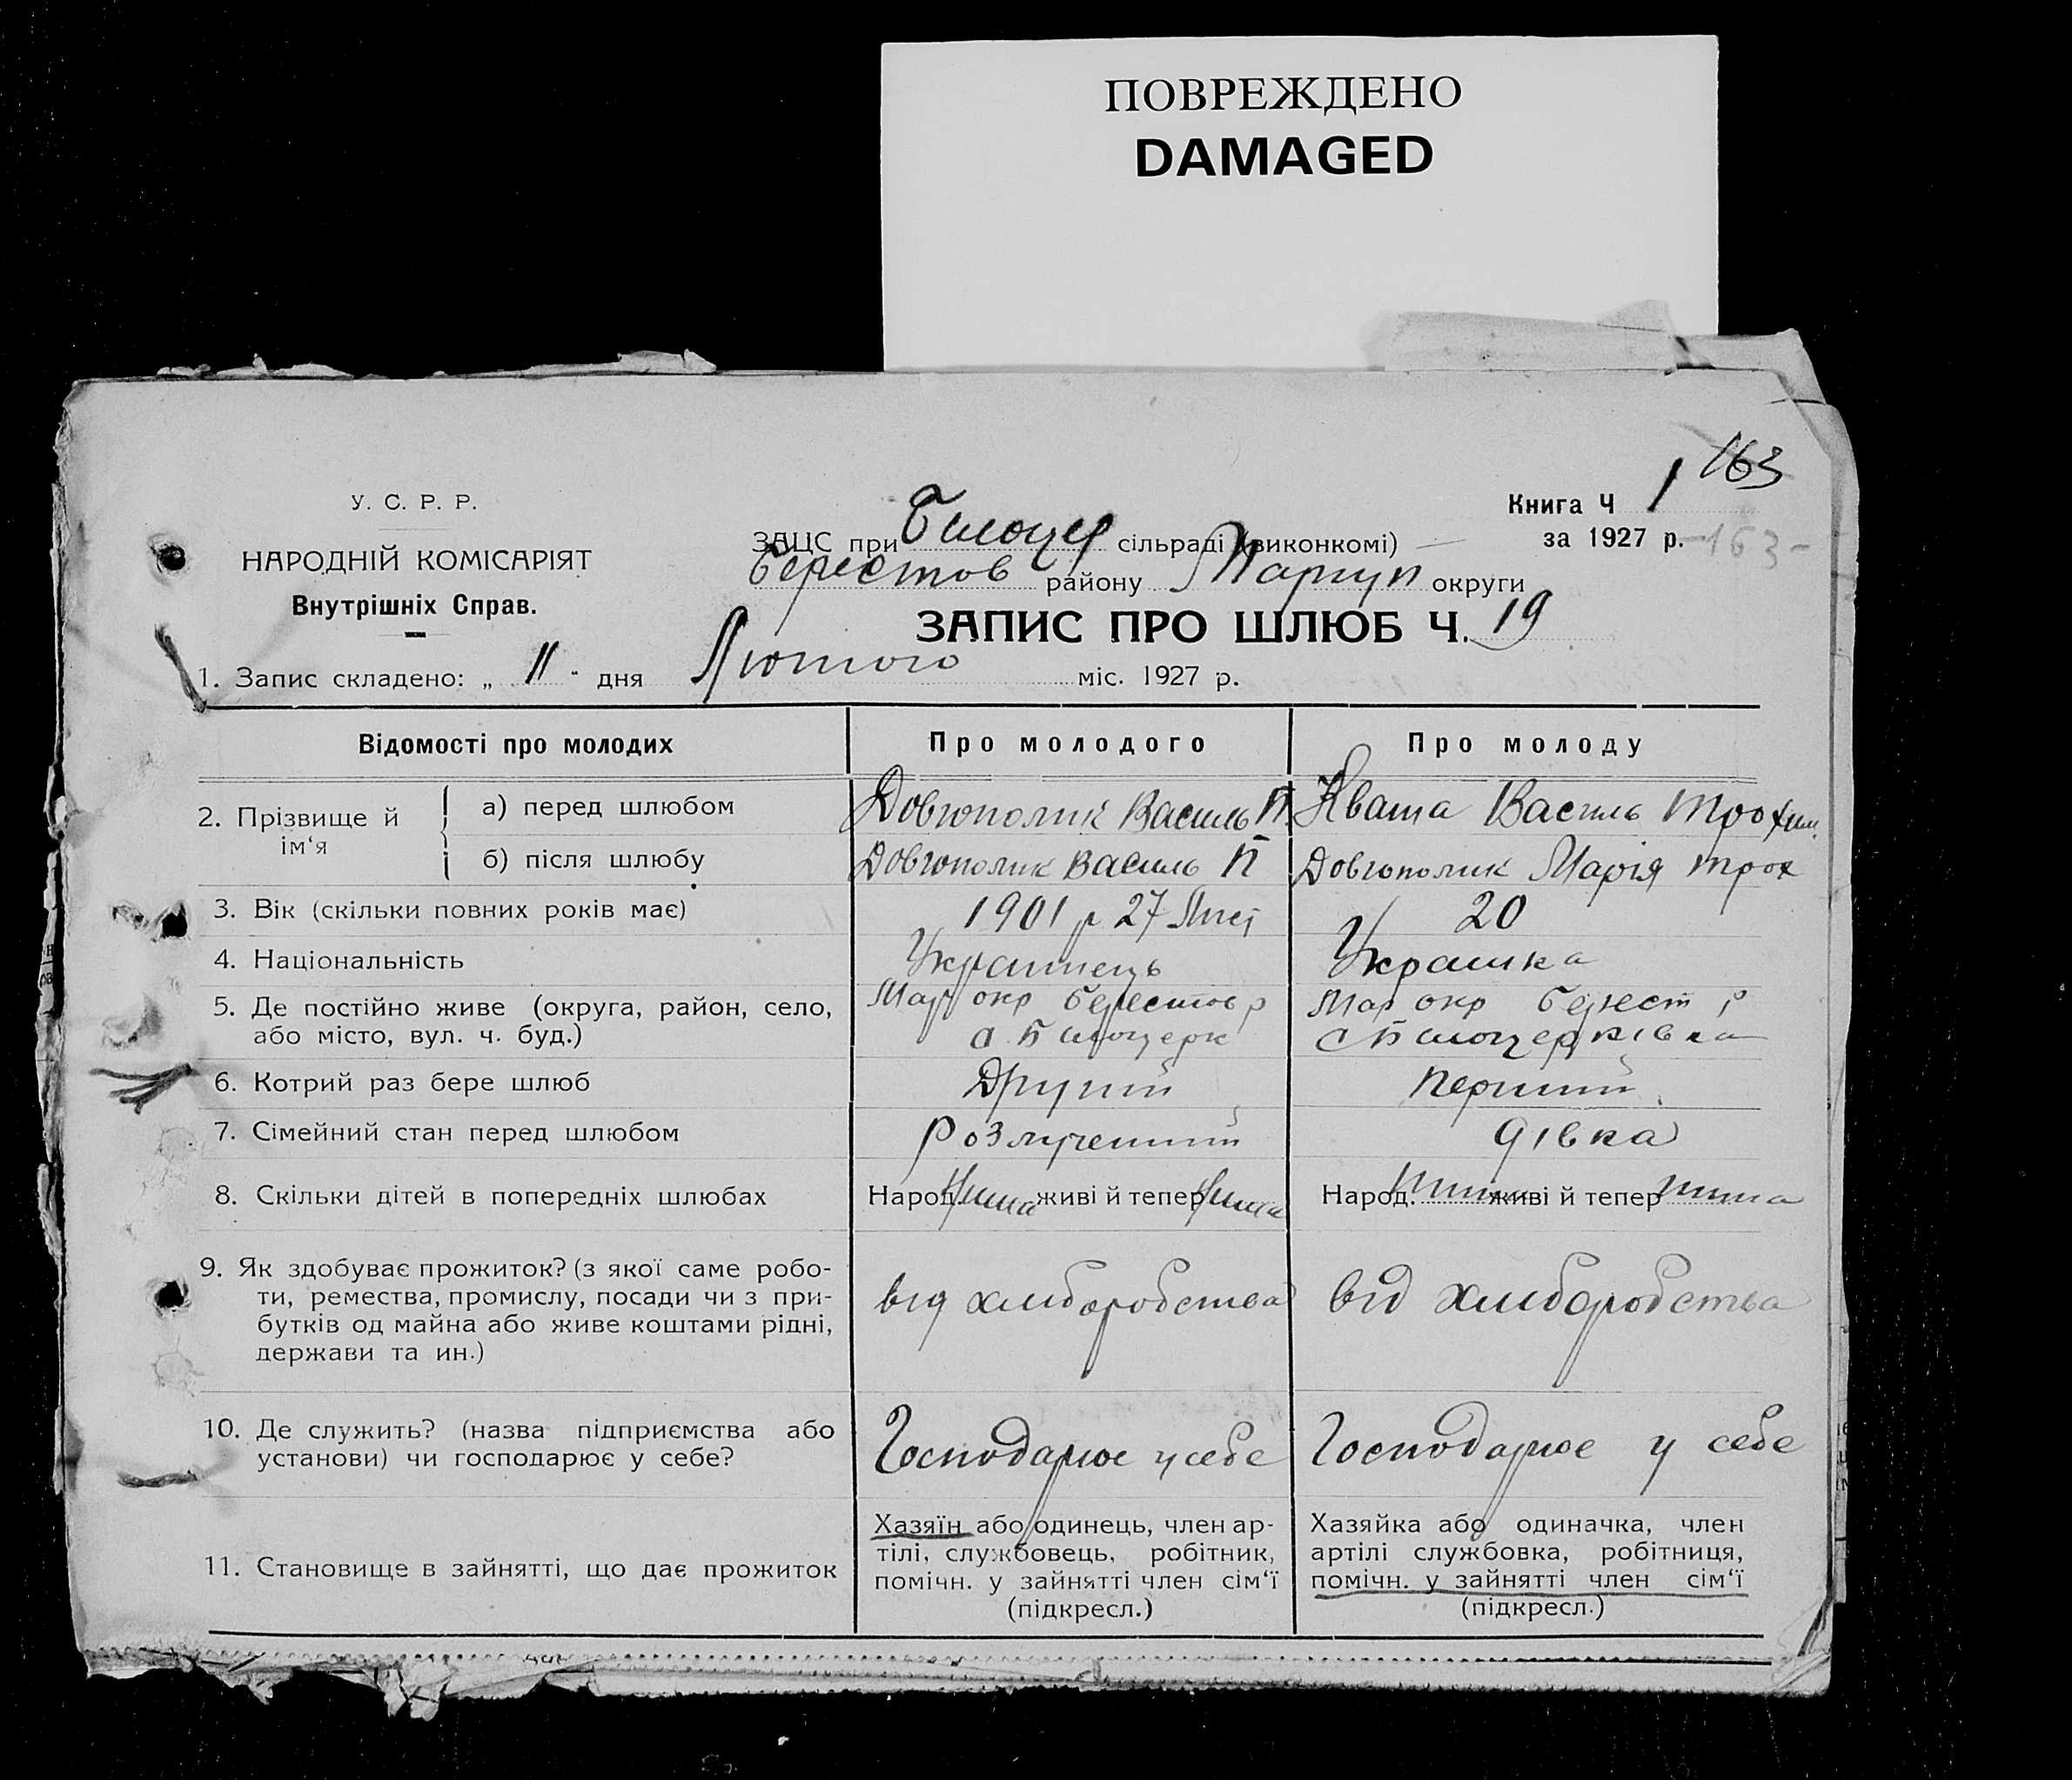 ПОВРЕЖДЕНО
DAMAGED
163
У. С. Р. Р.
НАРОДНІЙ КОМІСАРІЯТ
Внутрішніх Справ.
Книга Ч 1
за 1927 р. -163-
ЗАЦС при Билоцер сільраді (виконкомі)
Берестов району Маріуп округи
ЗАПИС ПРО ШЛЮБ Ч. 19
1. Запис складено: „ 11 " дня Лютого міс. 1927 р.
Відомості про молодих
Про молодого
Про молоду
2. Прізвище й ім‘я
а) перед шлюбом
Довгополик Василь П.
Кваша Василь Трохим.
б) після шлюбу
Довгополик Василь П
Довгополик Марія Трох
3. Вік (скільки повних років має)
1901 р 27
20
4. Національність
Українець
Українка
5. Де постійно живе (округа, район, село,
або місто, вул. ч. буд.)
Мар окр Берестов р
с Билоцерк
Мар окр Берест р
с Билоцерківка
6. Котрий раз бере шлюб
Другий
Перший
7. Сімейний стан перед шлюбом
Розлучений
дівка
8. Скільки дітей в попередніх шлюбах
Народ. Нима живі й тепер Нима
Народ. Нима живі й тепер нима
9. Як здобуває прожиток? (з якої саме робо-
ти, ремества, промислу, посади чи з при-
бутків од майна або живе коштами рідні,
держави та ин.)
від хлиборобства
від хлиборобства
10. Де служить? (назва підприємства або
установи) чи господарює у себе?
Господарює у себе
Господарює у себе
11. Становище в зайнятті, що дає прожиток
Хазяїн або одинець, член ар-
тілі, службовець, робітник,
помічн. у зайнятті член сім‘ї
(підкресл.)
Хазяйка або одиначка, член
артілі службовка, робітниця,
помічн. у зайнятті член сім‘ї
(підкресл.)